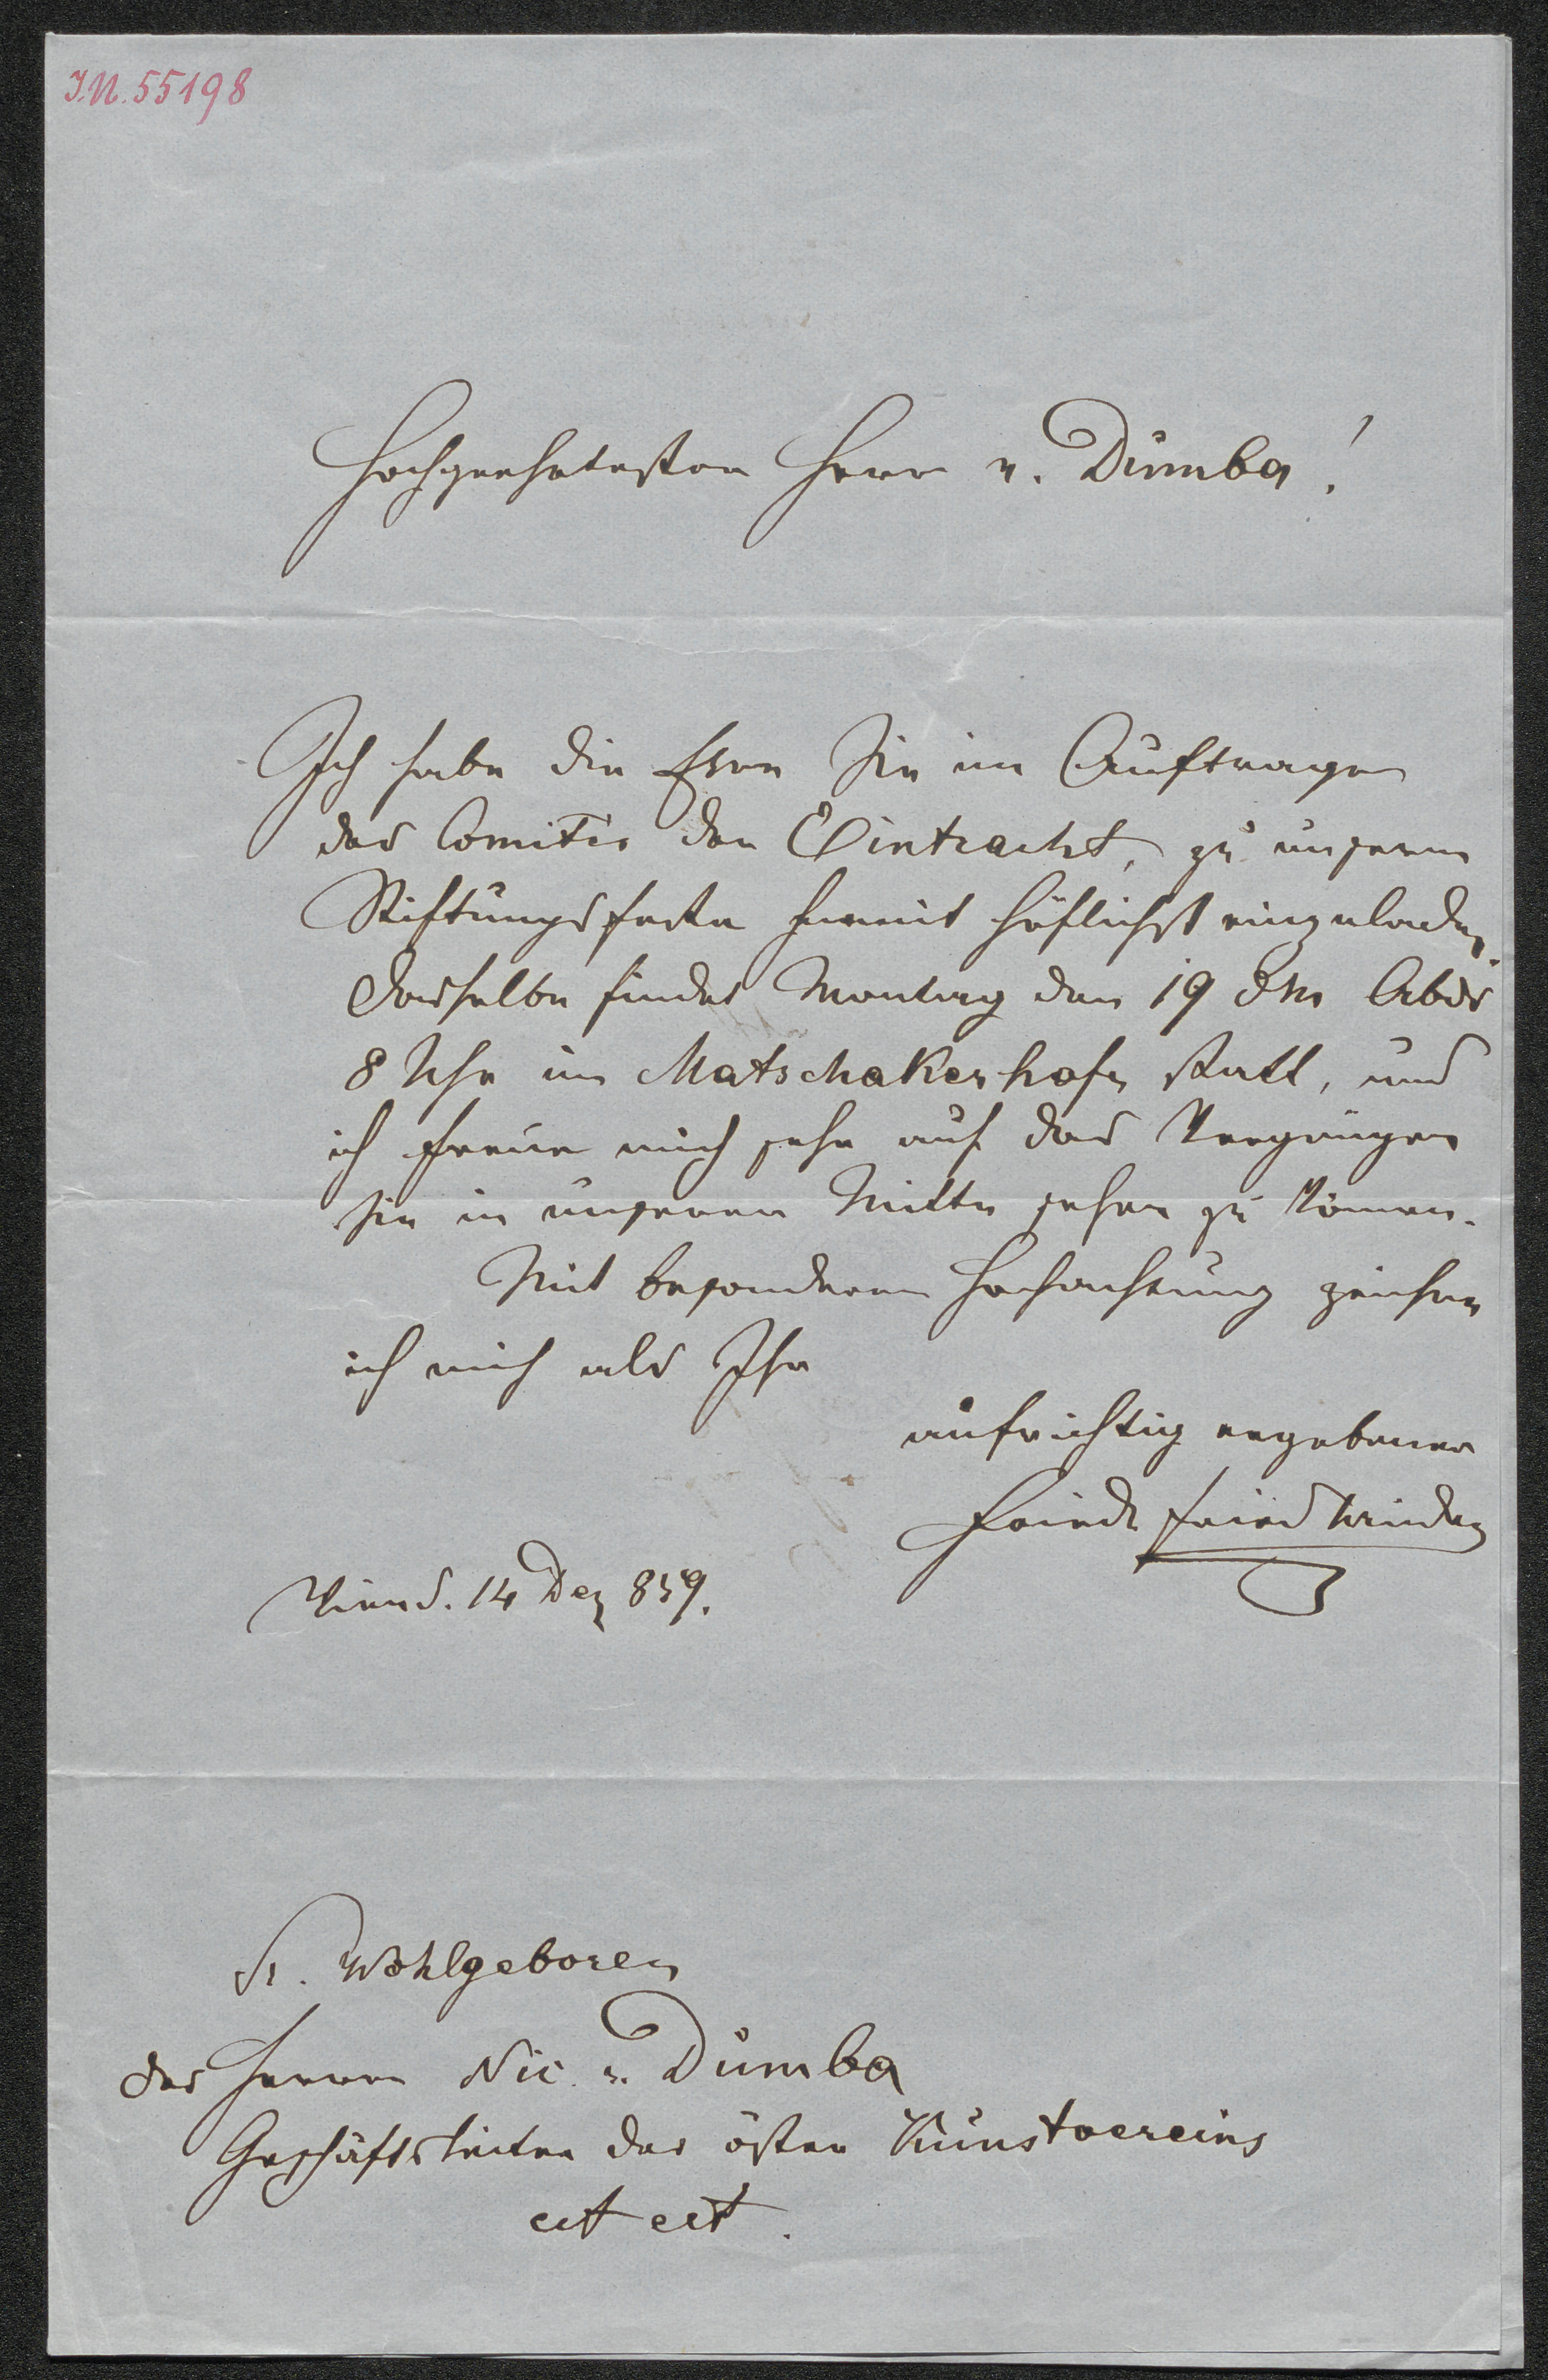 I.N. 55198
Hochgeehrtester Herr v. Dumba!
Ich habe die Ehre Sie im Auftrage
des Comités der Eintracht, zu unserem
Stiftungsfeste hiermit höflichst einzuladen.
Dasselbe findet Montag den 19 dM Abds
8 Uhr im Matschakerhofe statt, und
ich freue mich sehr auf das Vergnügen
Sie in unserer Mitte sehen zu können.
Mit besonderer Hochachtung zeichne
ich mich als Ihr
aufrichtig ergebener
Friedr Friedländer
Wien d. 14 Dez 859.
Sr. Wohlgeboren
des Herrn Nic. v. Dumba
Geschäftsleiter des öster Kunstvereins
ect ect.